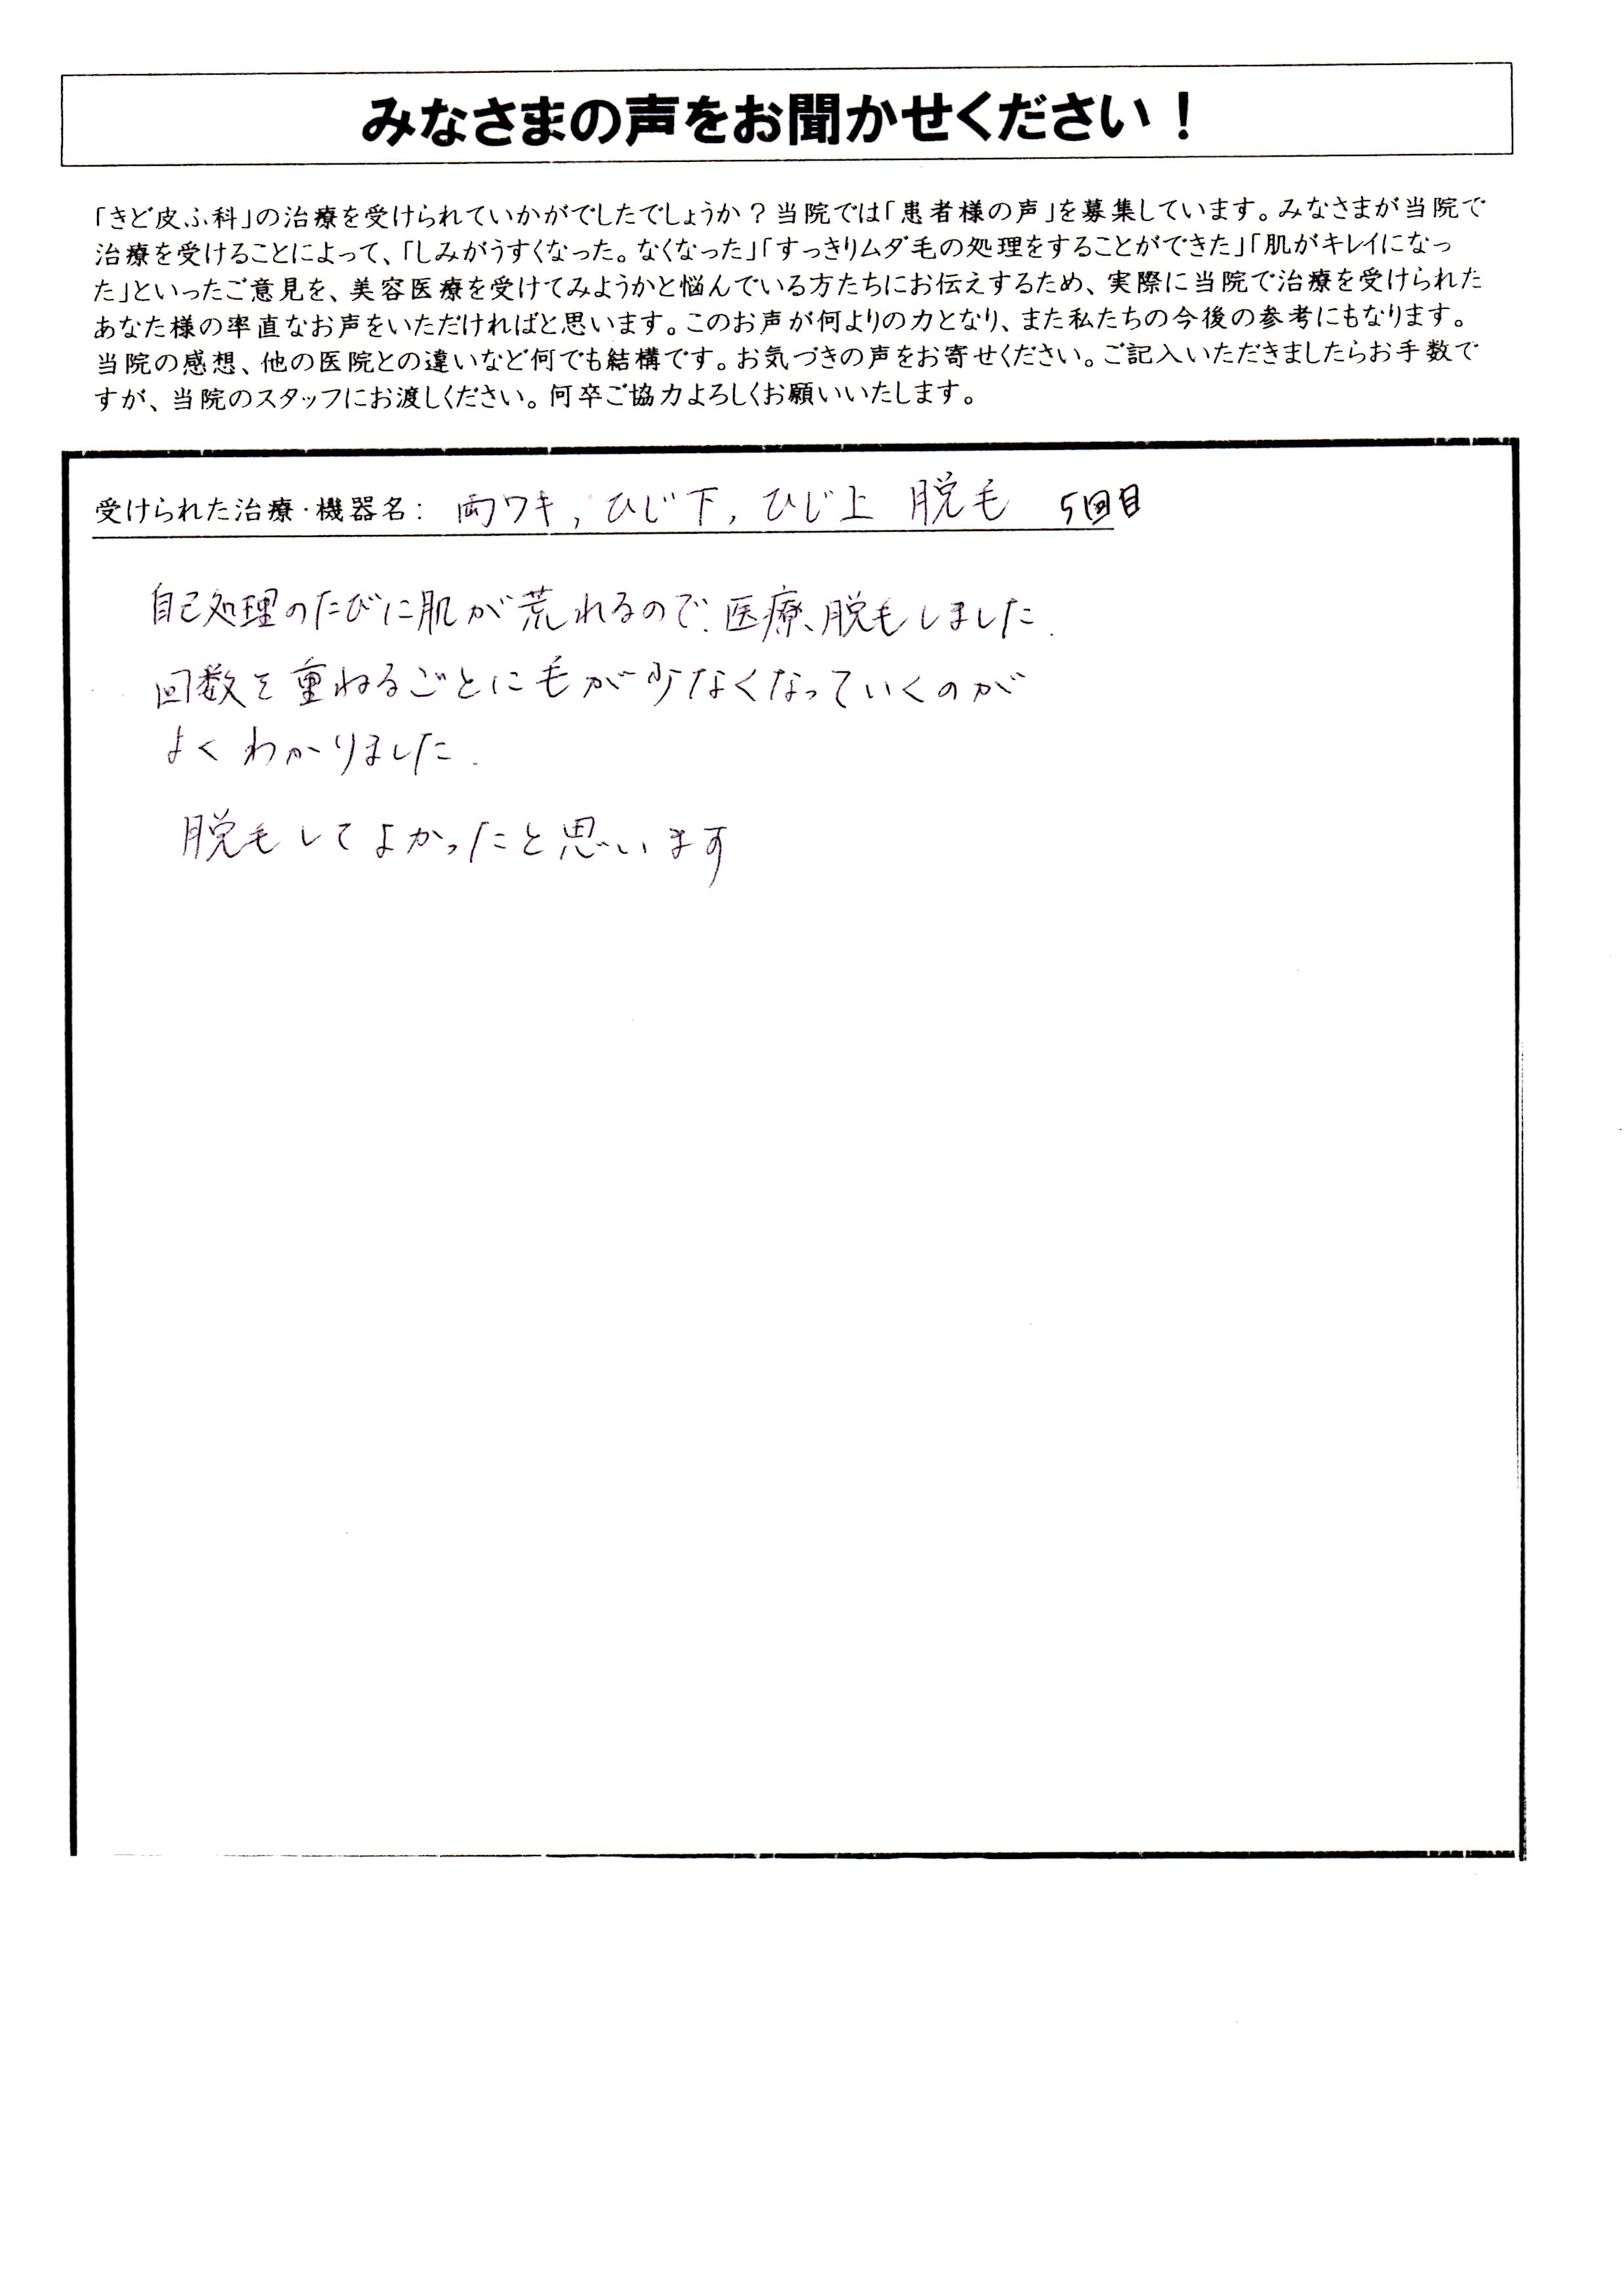 みなさまの声をお聞かせください！
「きど皮ふ科」の治療を受けられていかがでしたでしょうか？当院では「患者様の声」を募集しています。みなさまが当院で
治療を受けることによって、「しみがうすくなった。なくなった」「すっきりムダ毛の処理をすることができた」「肌がキレイになっ
た」といったご意見を、美容医療を受けてみようかと悩んでいる方たちにお伝えするため、実際に当院で治療を受けられた
あなた様の率直なお声をいただければと思います。このお声が何よりの力となり、また私たちの今後の参考にもなります。
当院の感想、他の医院との違いなど何でも結構です。お気づきの声をお寄せください。ご記入いただきましたらお手数で
すが、当院のスタッフにお渡しください。何卒ご協力よろしくお願いいたします。
受けられた治療・機器名：両ワキ，ひじ下，ひじ上 脱毛 5回目
自己処理のたびに肌が荒れるので、医療脱毛しました.
回数を重ねるごとに毛が少なくなっていくのが
よくわかりました.
脱毛してよかったと思います